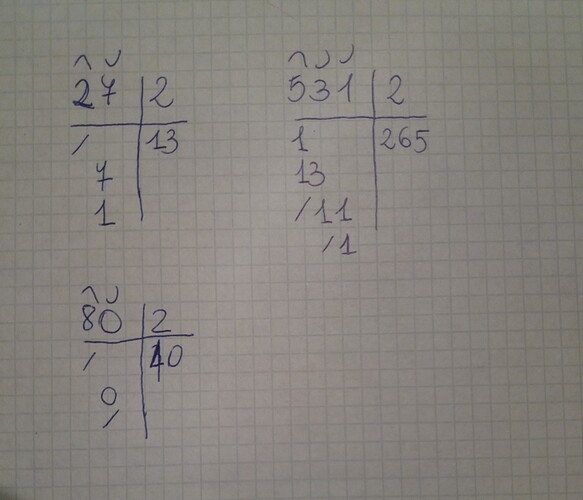 27 2
/ 13
7
1
531 2
1 265
13
/11
/1
80 2
/ 40
0
/